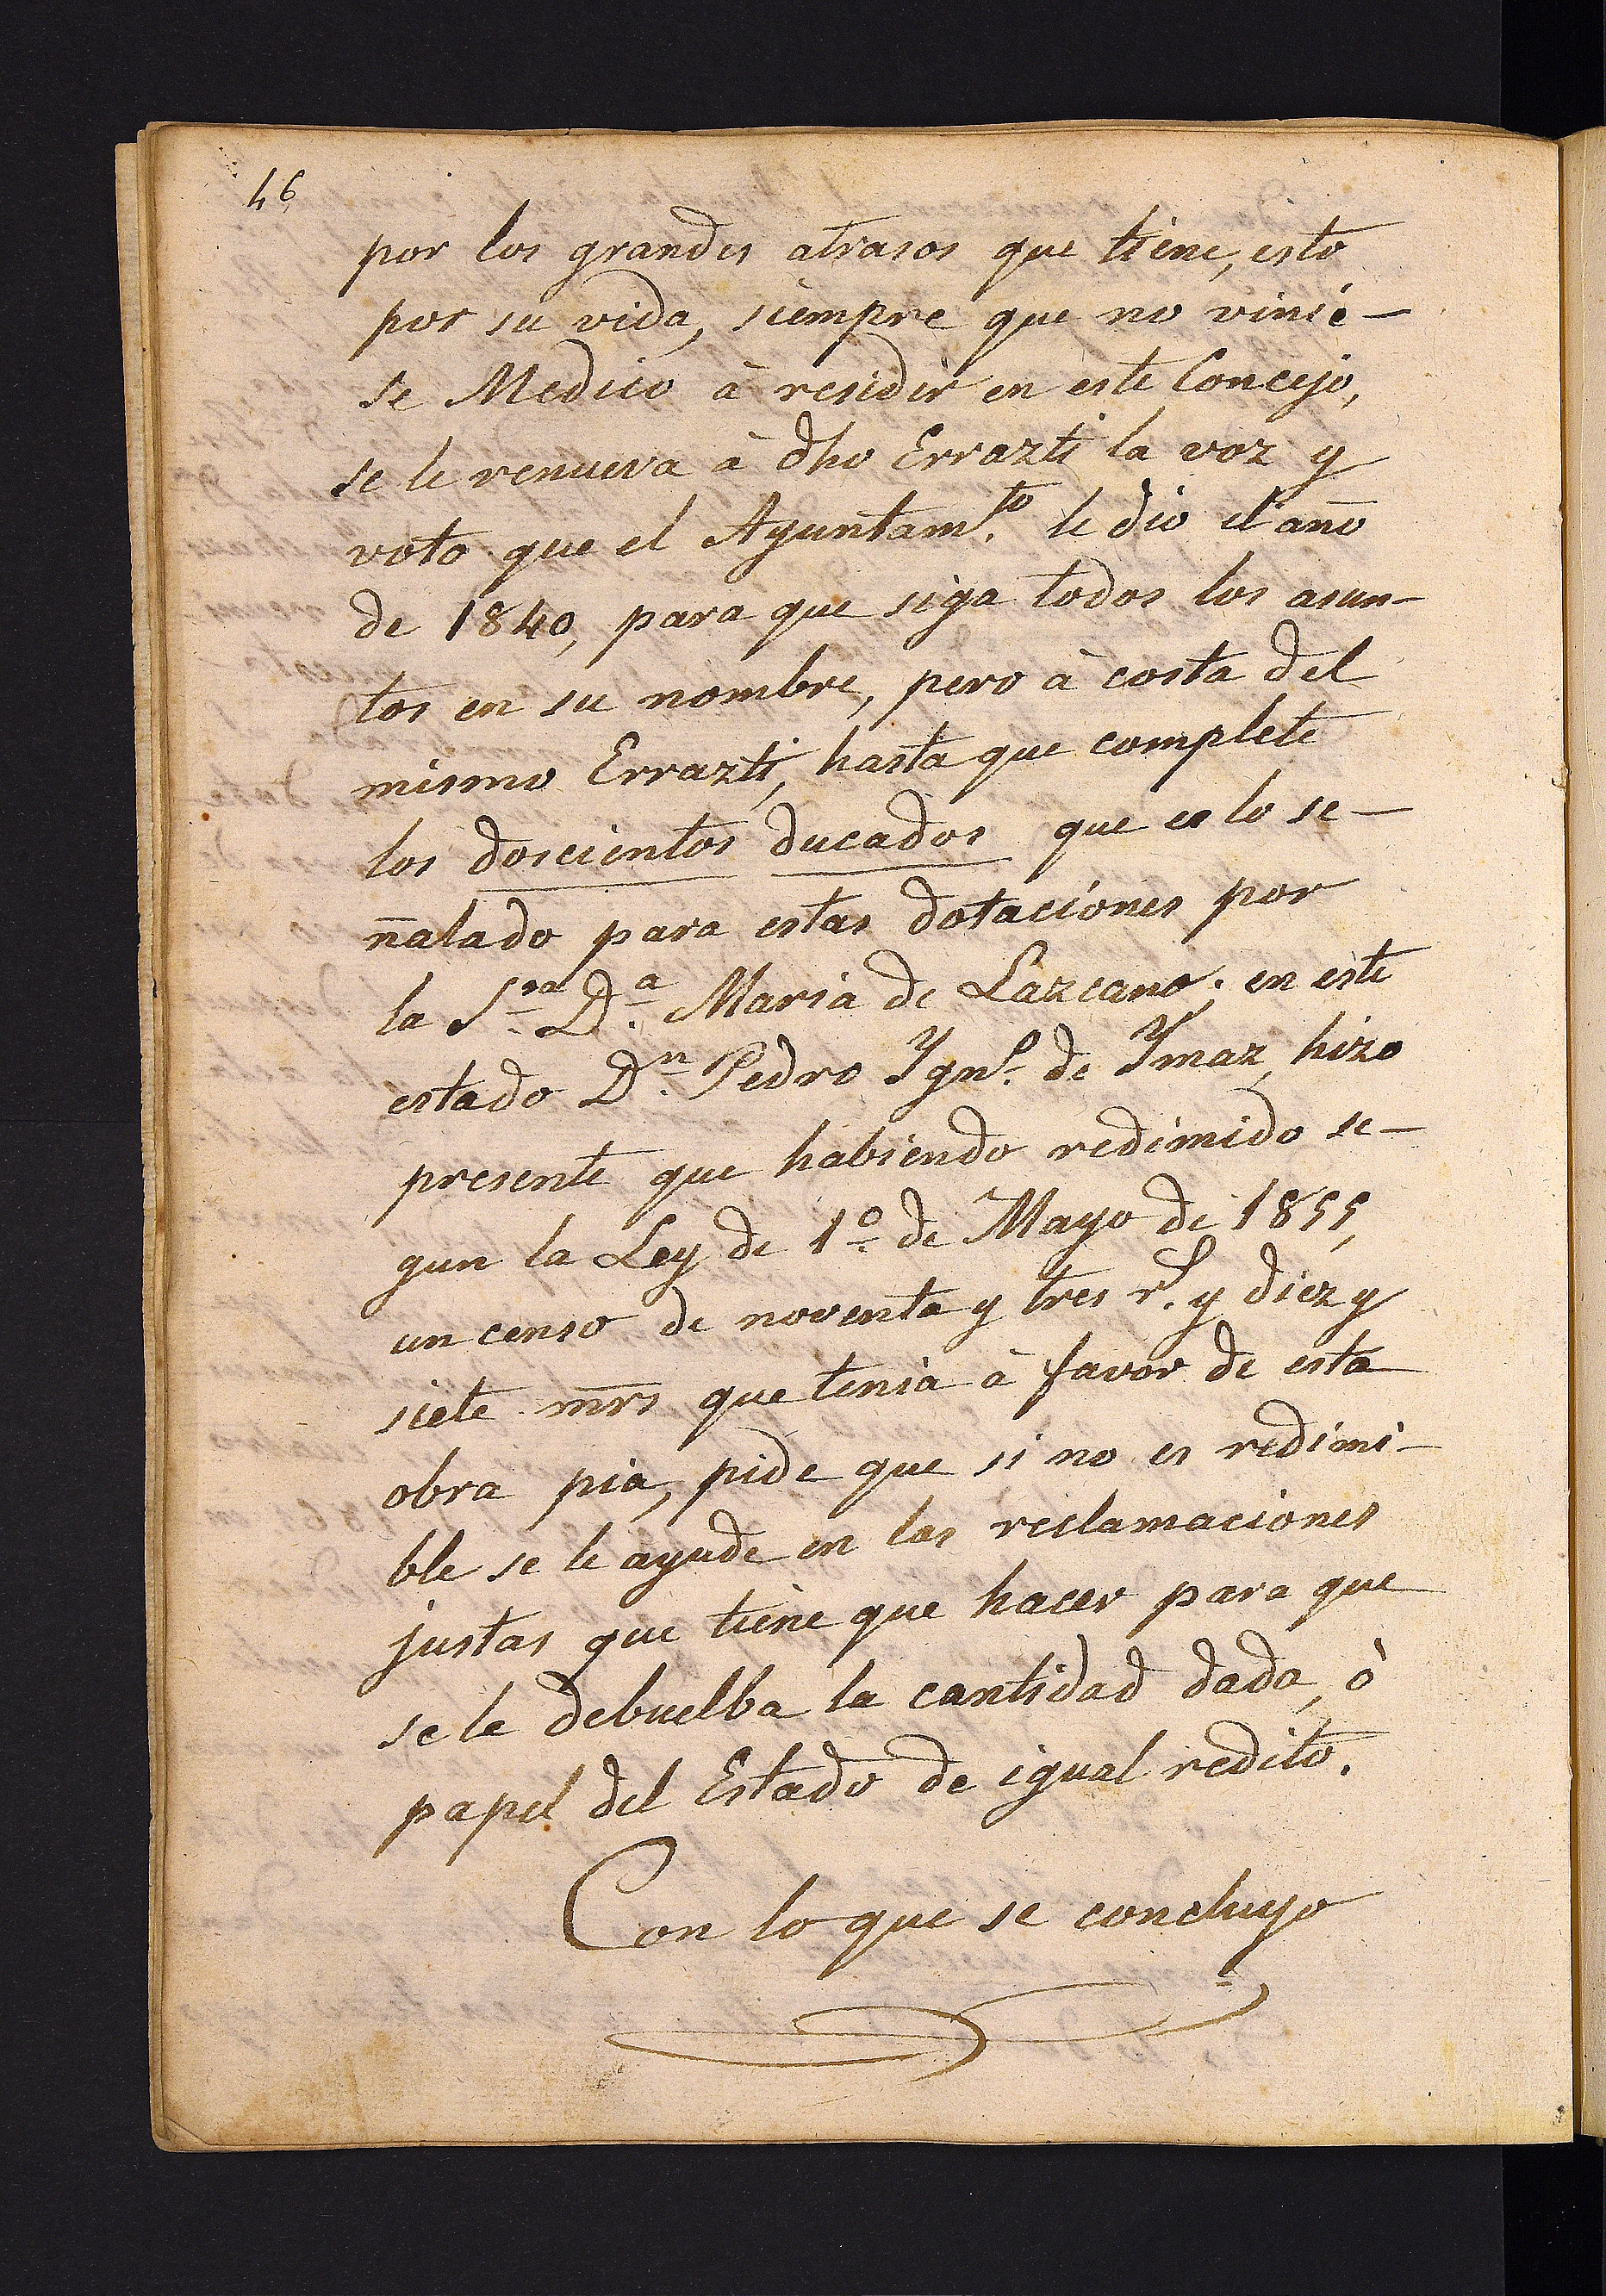 46
por los grandes atrasos que tiene, esto
por su vida, siempre que no vinie-
se Medico à residir en este Concejo,
se le renueva à dho Errazti la voz y
voto que el Ayuntam.to le dio el año
de 1840, para que siga todos los asun-
tos en su nombre, pero à costa del
mismo Errazti, hasta que complete
los doscientos ducados que es lo se-
ñalado para estas dotaciones por
la S.ra D.a Maria de Lazcano; en este
estado D.n Pedro Ygn.o de Ymaz, hizo
presente que habiendo redimido se-
gun la Ley de 1.o de Mayo de 1855,
un censo de noventa y tres r.s y diez y
siete mrs que tenia à favor de esta
obra pia, pide que si no es redimi-
ble se le ayude en las reclamaciones
justas que tiene que hacer para que
se le debuelba la cantidad dada, ò
papel del Estado de igual redito.
Con lo que se concluyo